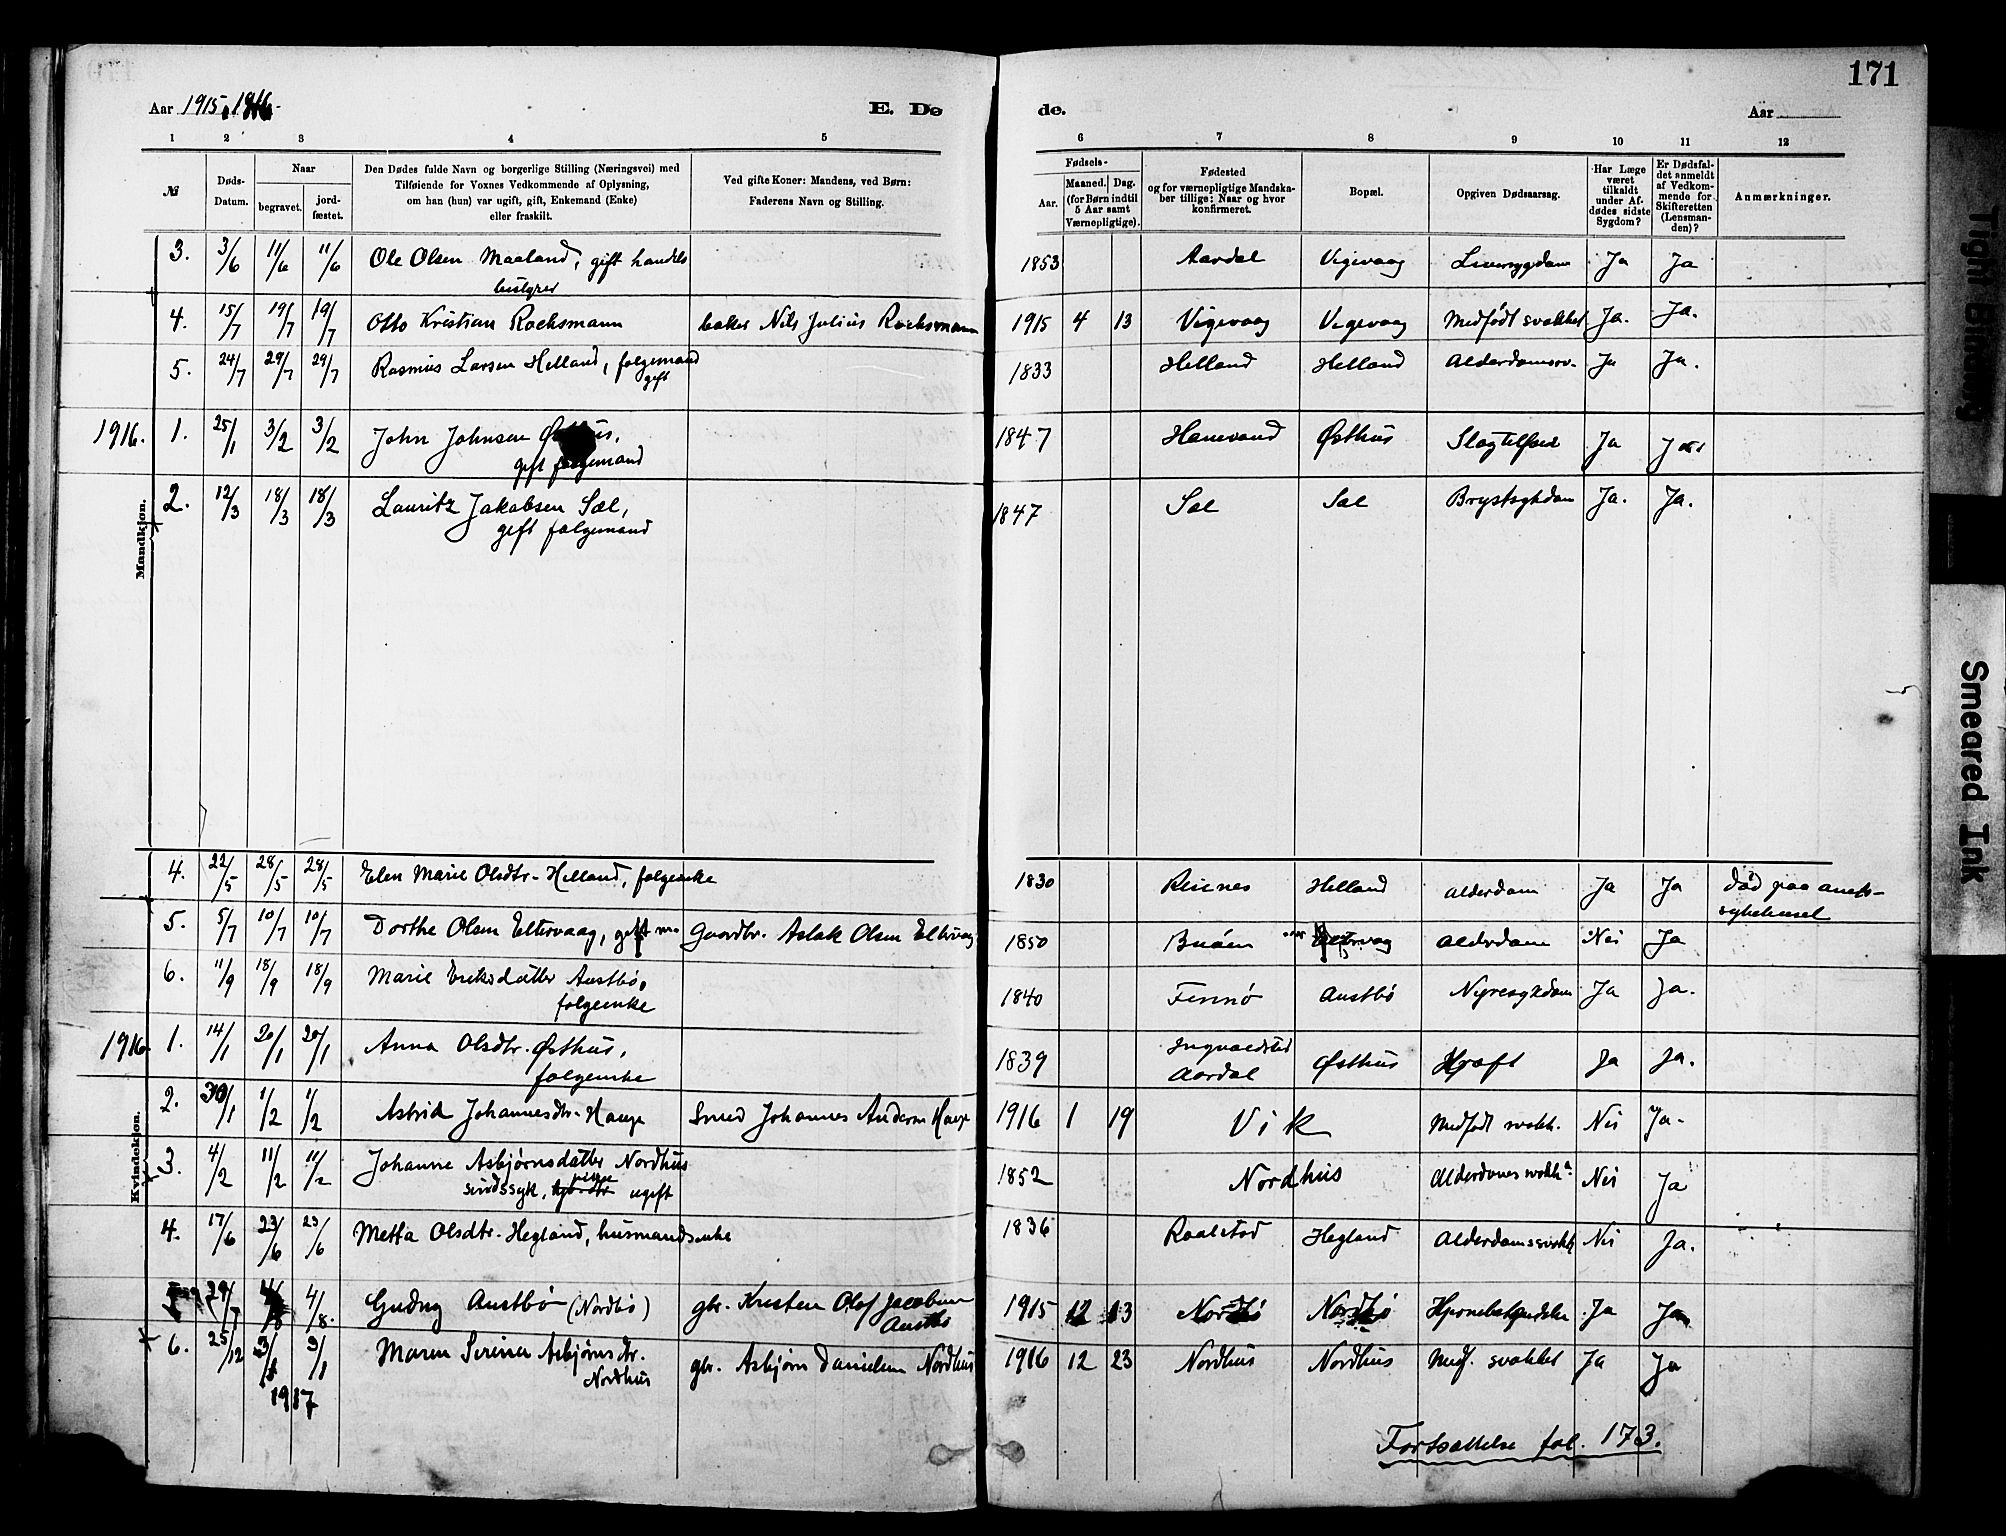 171
Aar 1915, 1916.
E. Dø
de.
Aar
1 2 3 4 5 6 7 8 9 10 11 12
№
Døds-
Datum.
Naar
begravet.
jord-
fæstet.
Den Dødes fulde Navn og borgerlige Stilling (Næringsvei) med
Tilføiende for Voxnes Vedkommende af Oplysning,
om han (hun) var ugift, gift, Enkemand (Enke)
eller fraskilt.
Ved gifte Koner: Mandens, ved Børn:
Faderens Navn og Stilling.
Fødsels-
Aar.
Maaned. Dag.
(for Børn indtil
5 Aar samt
Værnepligtige).
Fødested
og for værnepligtige Mandska-
ber tillige: Naar og hvor
konfirmeret.
Bopæl.
Opgiven Dødsaarsag.
Har Læge
været
tilkaldt
under Af-
dødes sidste
Sygdom?
Er Dødsfal-
det anmeldt
af Vedkom-
mende for
Skifteretten
(Lensman-
den)?
Anmærkninger.
Mandkjøn.
3. 3/6 11/6 11/6 Ole Olsen Maaland, gift handels 1853 Aardal Vigevaag Liversygdom Ja Ja
bestyrer
4. 15/7 19/7 19/7 Otto Kristian Rocksmann baker Nils Julius Rocksmann 1915 4 13 Vigevaag Vigevaag Medfødt svakhet Ja. Ja.
5. 24/7 29/7 29/7 Rasmus Larsen Helland, følgemand 1833 Helland Helland Alderdomssv. Ja Ja.
gift
1916. 1. 25/1 3/2 3/2 John Johnsen Østhus, 1847 Hanevand Østhus Slagtilfæld Ja Ja
gift følgemand
2. 12/3 18/3 18/3 Lauritz Jakobsen Sæl, 1847 Sæl Sæl Brystsykdom Ja. Ja.
gift følgemand
Kvindekjøn.
4. 22/5 28/5 28/5 Elen Marie Olsdtr. Helland, følgeenke 1830 Reienes Helland Alderdom Ja Ja død paa amts-
sykehuset
5. 5/7 10/7 10/7 Dorthe Olsen Eltervaag, gift m. Gaardbr. Aslak Olsen Eltervaag 1850 Buøen Eltervaag Alderdom Nei Ja
6. 11/9 18/9 18/9 Marie Eriksdatter Austbø, 1840 Finnø Austbø Nyresykdom Ja Ja.
følgeenke
1916. 1. 14/1 20/1 20/1 Anna Olsdtr. Østhus, 1839 Ingvaldstad Østhus Kræft Ja Ja.
følgeenke Aardal
2. 30/1 1/2 1/2 Astrid Johannesdtr. Hauge Smed Johannes Andersen Hauge 1916 1 19 Vik Medfødt svakh. Nei Ja.
3. 4/2 11/2 11/2 Johanne Asbjørnsdatter Nordhus 1852 Nordhus Alderdomssvakh. Nei Ja
sindssyk, pige ugift
4. 17/6 23/6 23/6 Metta Olsdtr. Hegland, husmandsenke 1836 Raalstad Hegland Alderdomssvakh Nei Ja.
29/7 4/8 4/8. Gudny Austbø (Nordbø) gbr. Kristen Olaf Jacobsen 1915 12 13 Nordbø Nordbø Hjernebetændelse Ja Ja
Austbø
6. 25/12 3/1 3/1 Maren Serina Asbjørnsdtr. gbr. Asbjørn Danielsen Nordhus 1916 12 23 Nordhus Nordhus Medf. svakhet Ja Ja
Nordhus
1917
Fortsættelse fol. 173.
Tight Binding
Smeared Ink